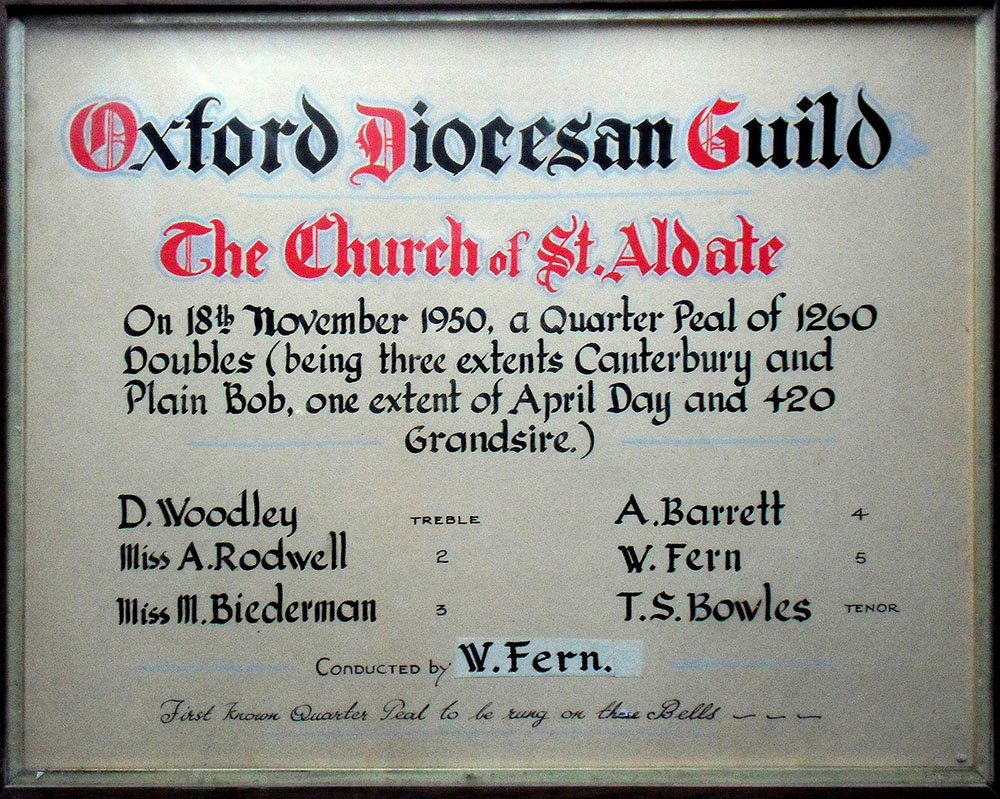 Oxford Diocesan Guild
The Church of St. Aldate
On 18th November 1950, a Quarter Peal of 1260
Doubles (being three extents Canterbury and
Plain Bob, one extent of April Day and 420
Grandsire.)
D. Woodley TREBLE A. Barrett 4
Miss A. Rodwell 2 W. Fern 5
Miss M. Biederman 3 T.S. Bowles TENOR
CONDUCTED by W. Fern.
First Known Quarter Peal to be rung on these Bells – – –